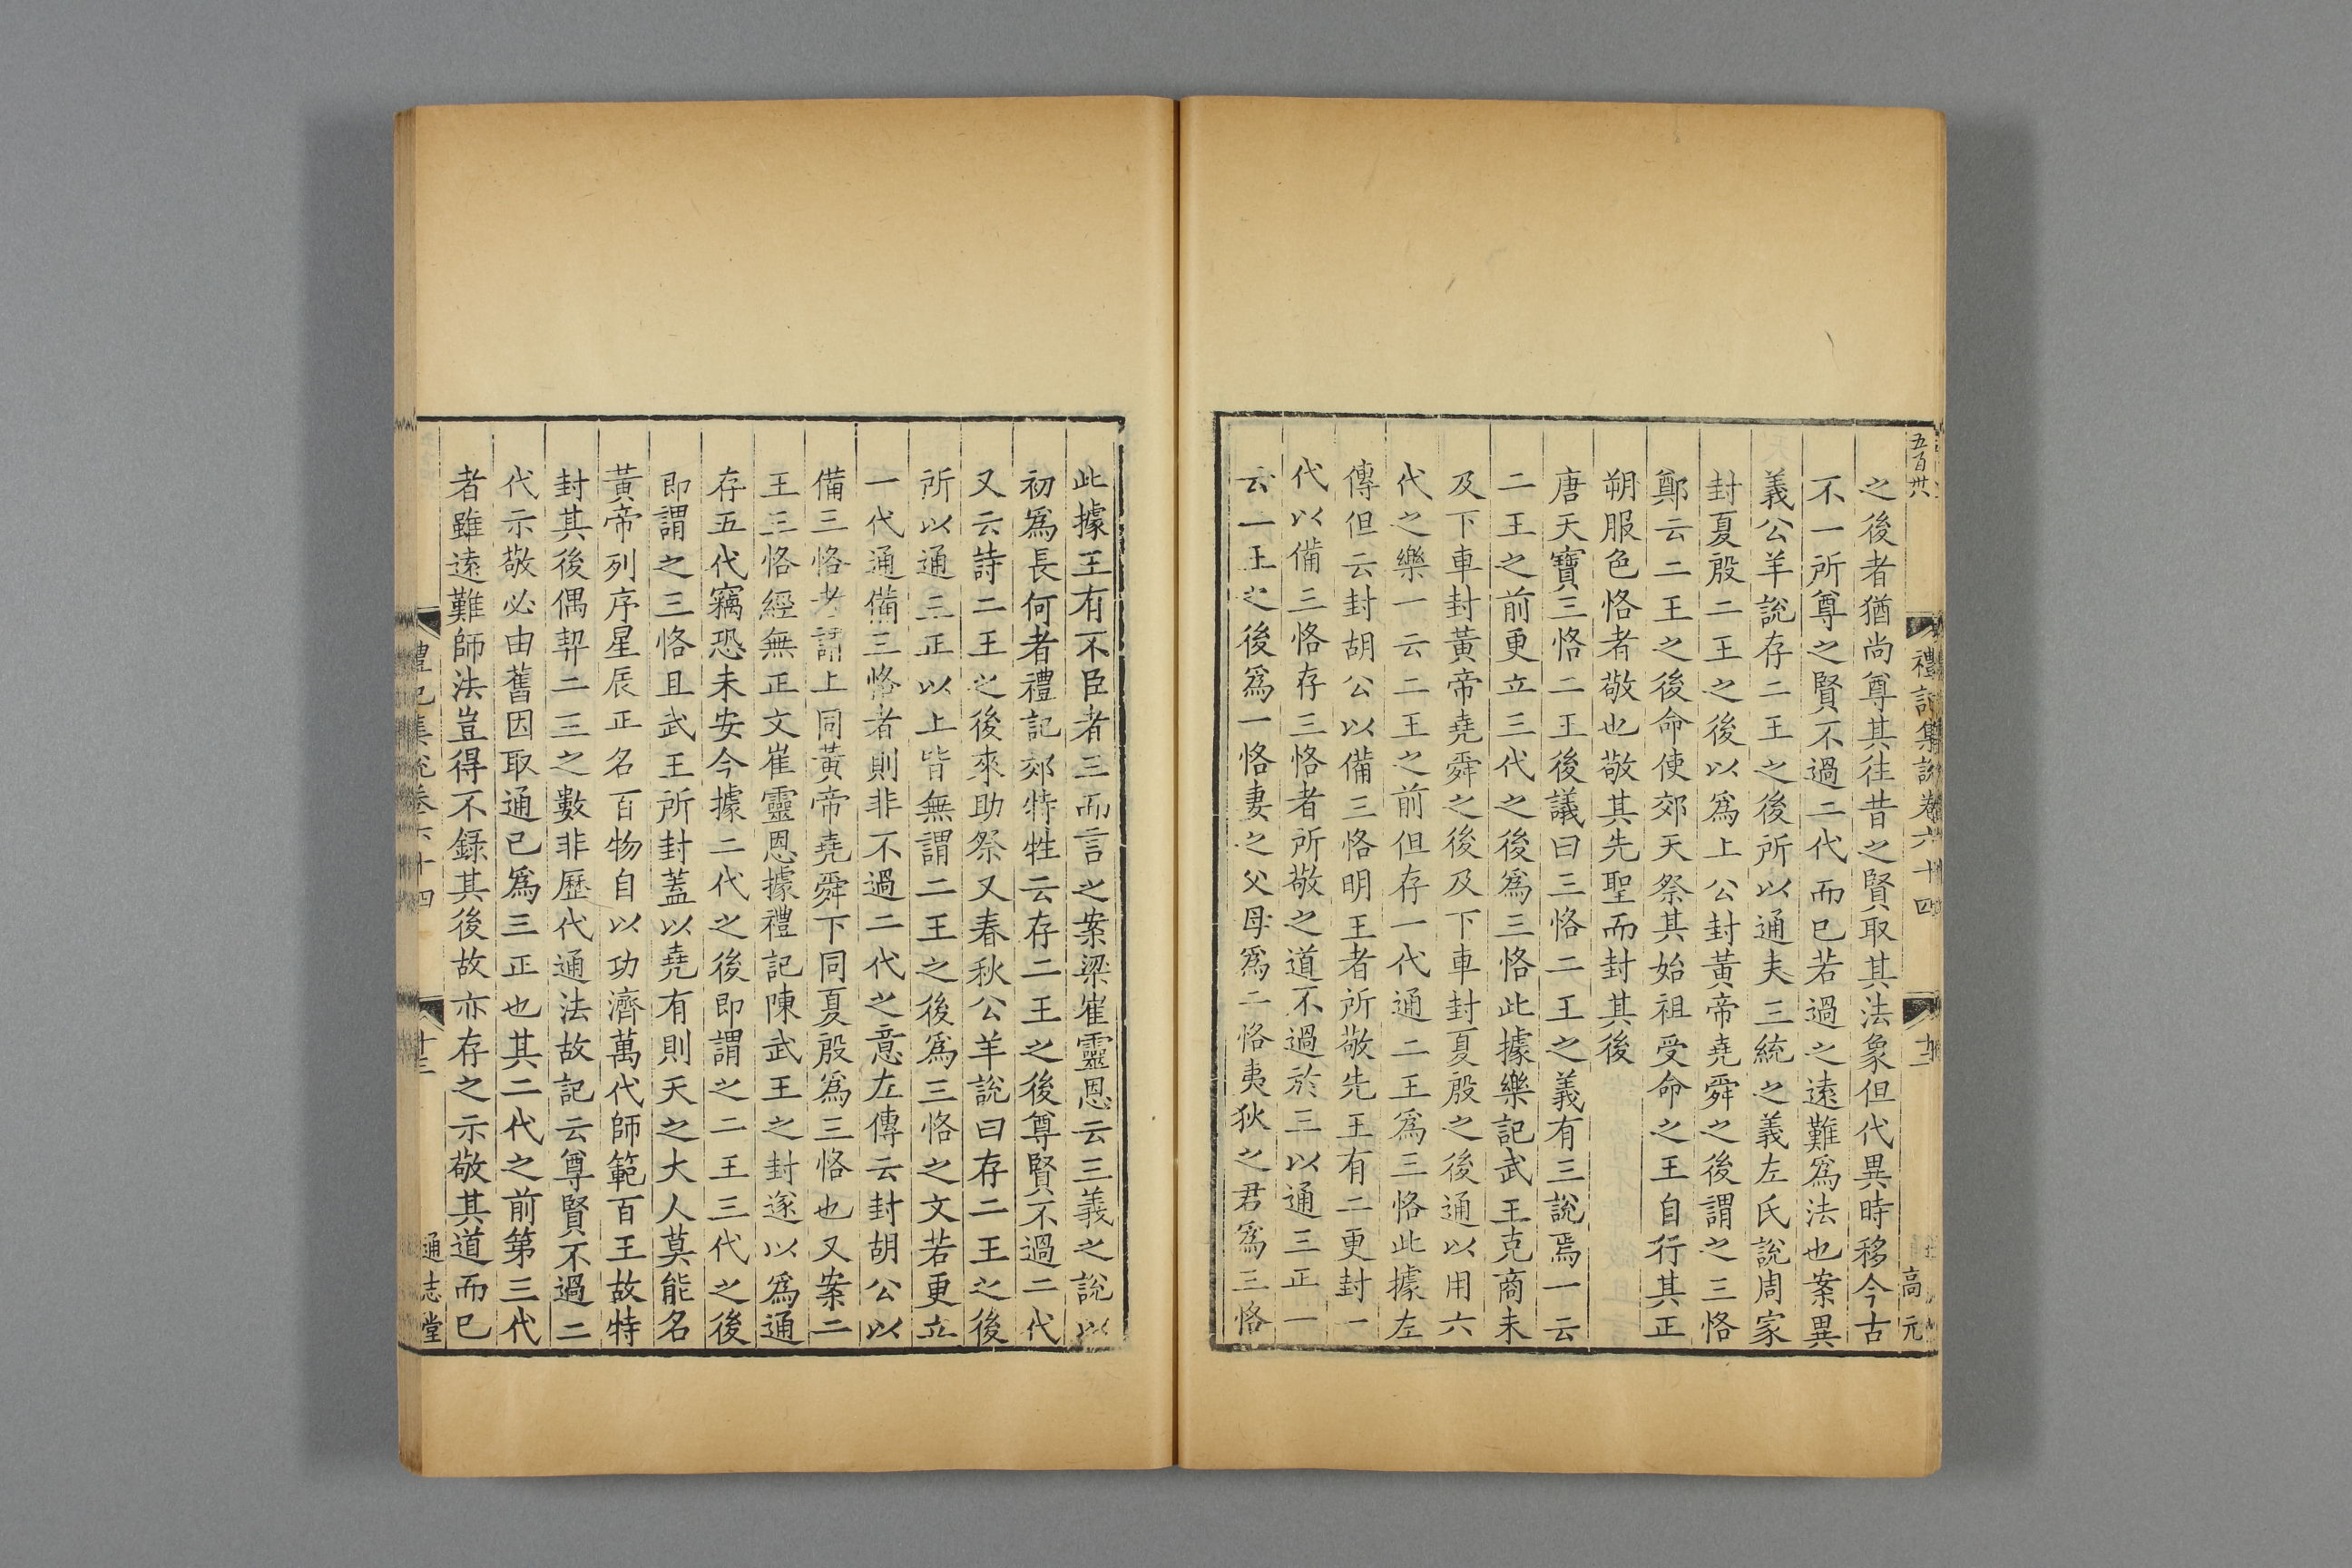 五百廿
禮記集說卷六十四
十二
高元
之後者猶尚尊其往昔之賢取其法象但代異時移今古
不一所尊之賢不過二代而已若過之遠難爲法也案異
義公羊說存二王之後所以通夫三統之義左氏說周家
封夏殷二王之後以爲上公封黃帝堯舜之後謂之三恪
鄭云二王之後命使郊天祭其始祖受命之王自行其正
朔服色恪者敬也敬其先聖而封其後
唐天寶三恪二王後議曰三恪二王之義有三說焉一云
二王之前更立三代之後爲三恪此據樂記武王克商未
及下車封黃帝堯舜之後及下車封夏殷之後通以用六
代之樂一云二王之前但存一代通二王爲三恪此據左
傳但云封胡公以備三恪明王者所敬先王有二更封一
代以備三恪存三恪者所敬之道不過於三以通三正一
云一王之後爲一恪妻之父母爲二恪夷狄之君爲三恪
此據王有不臣者三而言之案梁崔靈恩云三義之說以
初爲長何者禮記郊特牲云存二王之後尊賢不過二代
又云詩二王之後來助祭又春秋公羊說曰存二王之後
所以通三正以上皆無謂二王之後爲三恪之文若更立
一代通備三恪者則非不過二代之意左傳云封胡公以
備三恪者謂上同黃帝堯舜下同夏殷爲三恪也又案二
王三恪經無正文崔靈恩據禮記陳武王之封遂以爲通
存五代竊恐未安今據二代之後即謂之二王三代之後
即謂之三恪且武王所封蓋以堯有則天之大人莫能名
黃帝列序星辰正名百物自以功濟萬代師範百王故特
封其後偶契二三之數非歷代通法故記云尊賢不過二
代示敬必由舊因取通已爲三正也其二代之前第三代
者雖遠難師法豈得不錄其後故亦存之示敬其道而已
禮記集說卷六十四
十二
通志堂